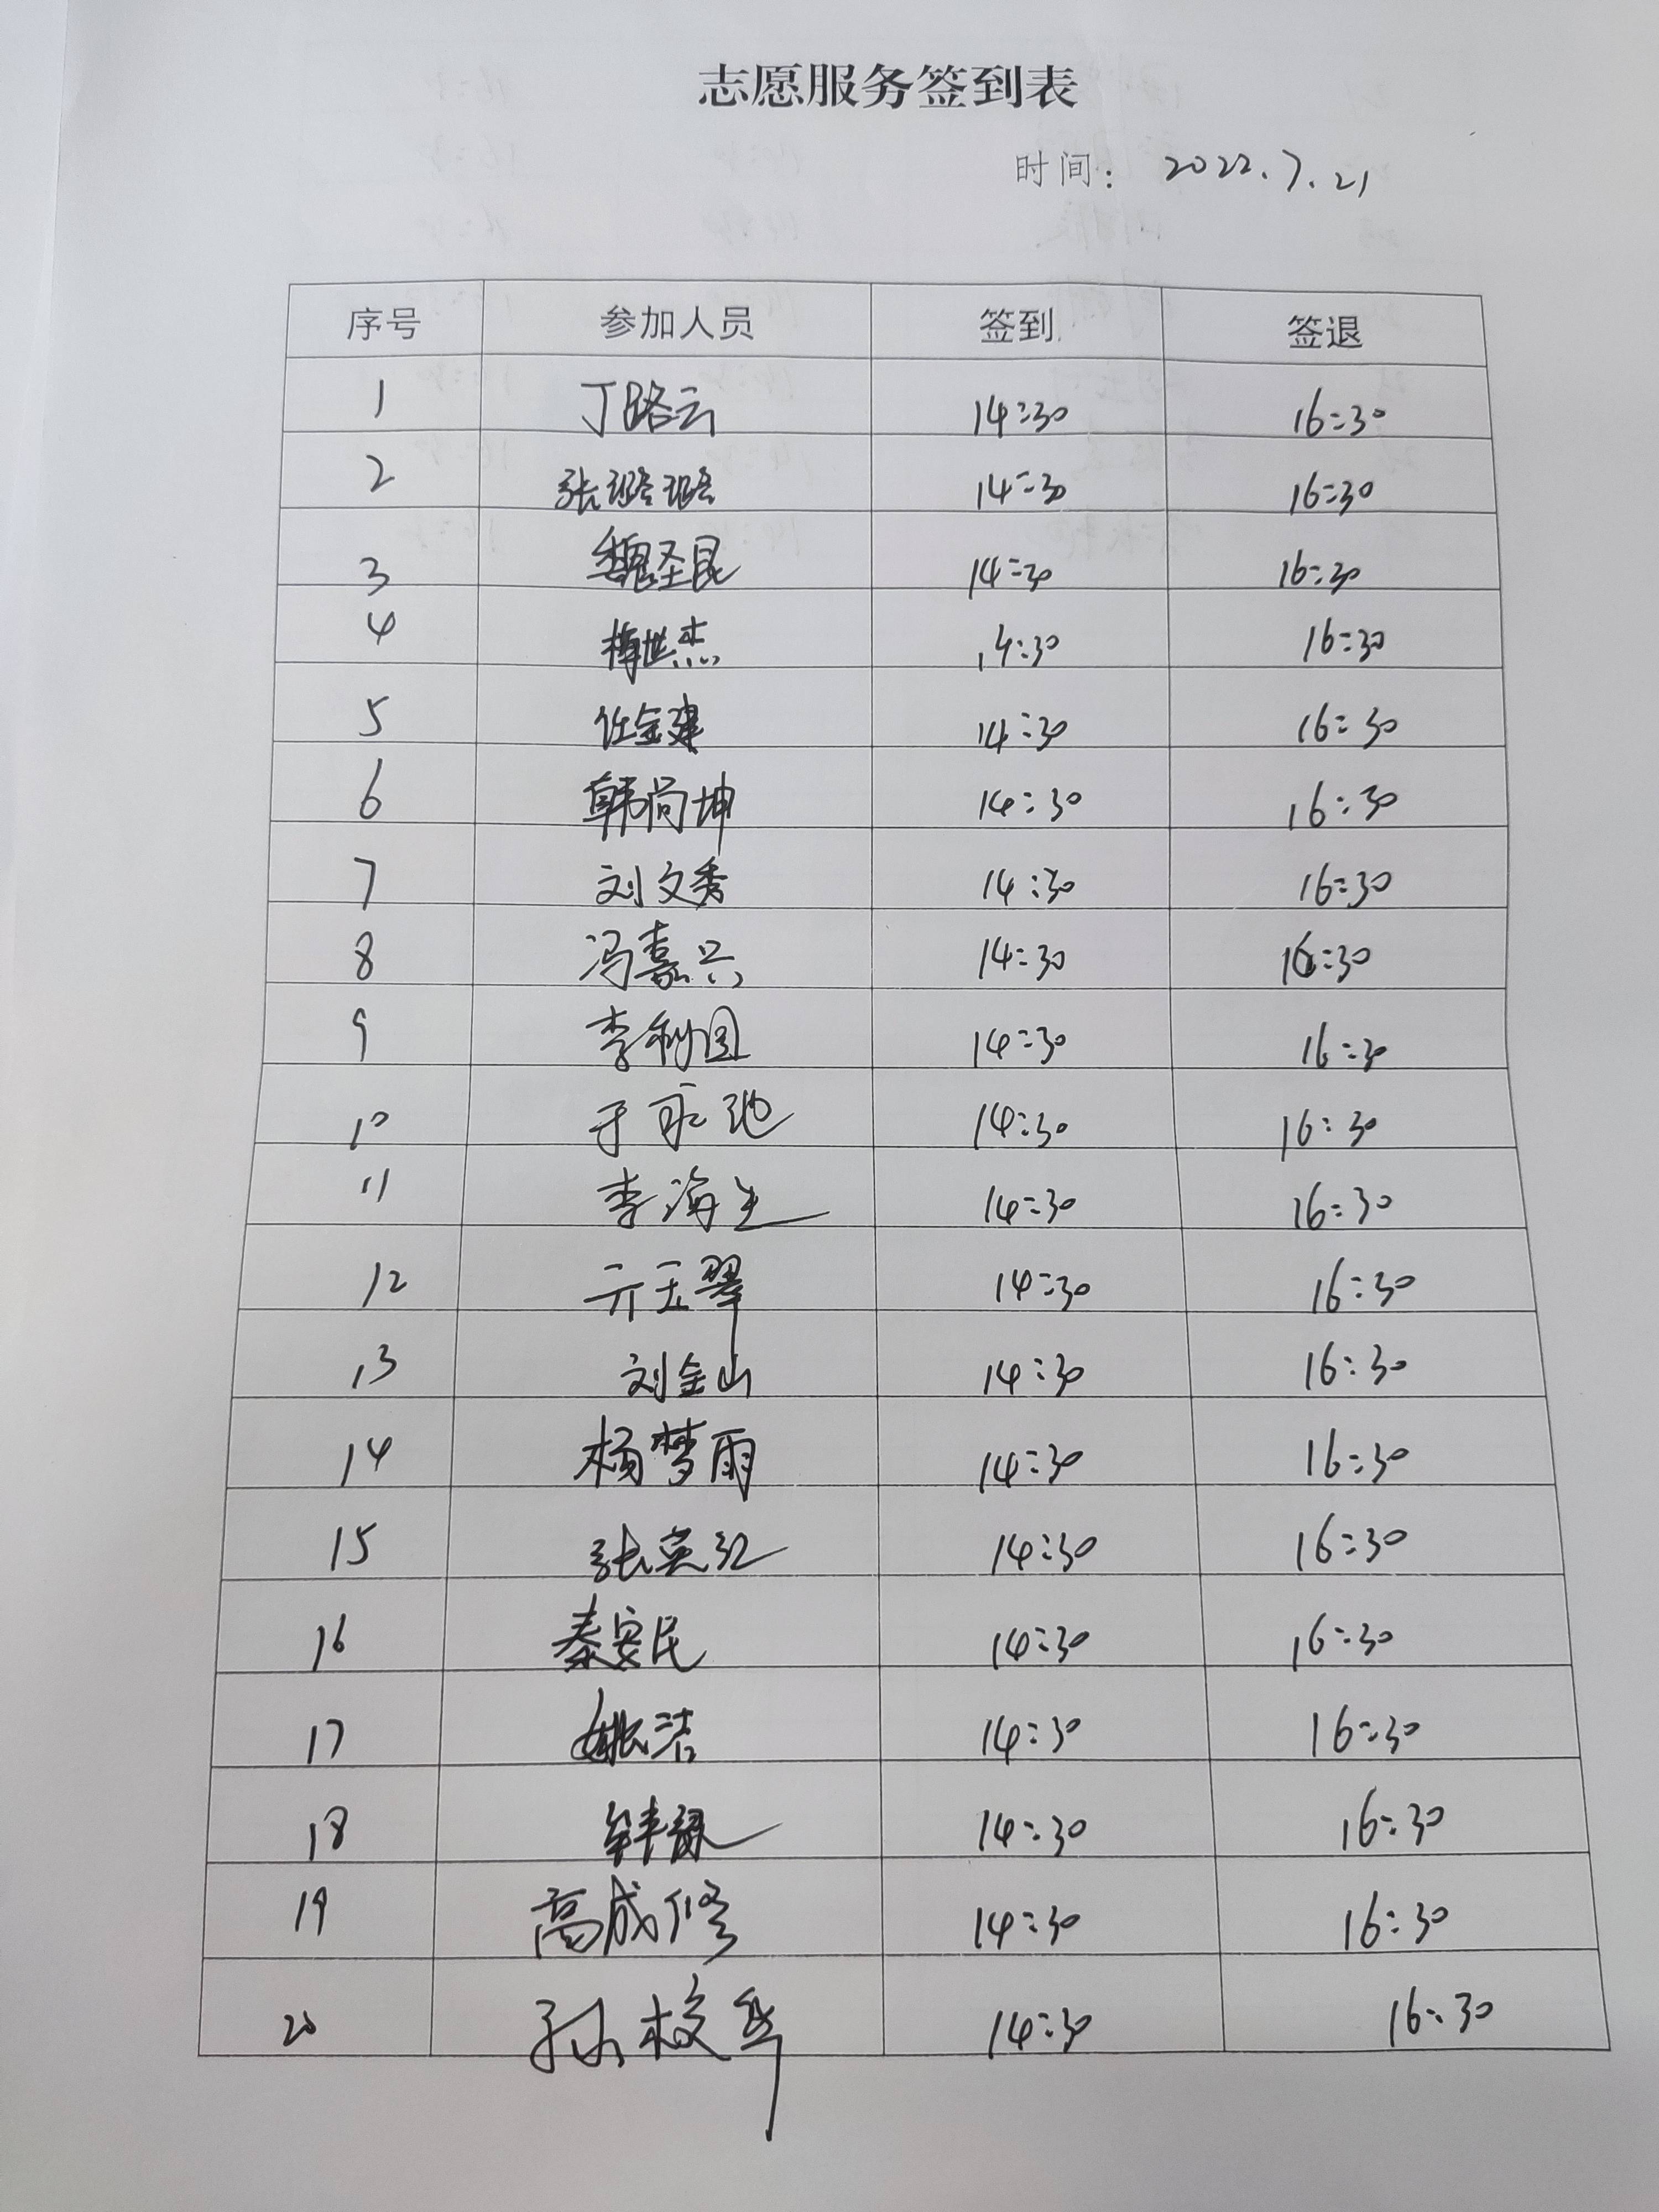 志愿服务签到表
时间： 2022.7.21
序号 参加人员 签到 签退
1 丁路云 14:30 16:30
2 张璐璐 14:30 16:30
3 魏圣昆 14:30 16:30
4 梅世杰 14:30 16:30
5 任金建 14:30 16:30
6 韩尚坤 14:30 16:30
7 刘文秀 14:30 16:30
8 冯嘉兴 14:30 16:30
9 李利国 14:30 16:30
10 于永池 14:30 16:30
11 李海生 14:30 16:30
12 亓玉翠 14:30 16:30
13 刘金山 14:30 16:30
14 杨梦雨 14:30 16:30
15 张英红 14:30 16:30
16 秦安民 14:30 16:30
17 姚洁 14:30 16:30
18 14:30 16:30
19 高成修 14:30 16:30
20 孙校军 14:30 16:30